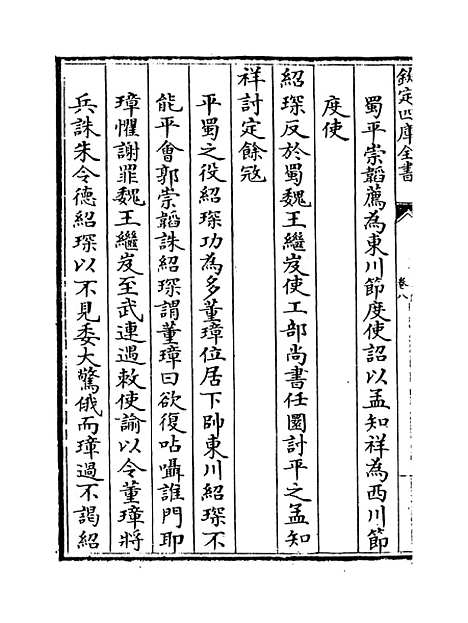 欽定四庫全書
卷八
蜀平崇韜薦為東川節度使詔以孟知祥為西川節
度使
紹琛反於蜀魏王繼岌使工部尚書任圜討平之孟知
祥討定餘冦
平蜀之役紹琛功為多董璋位居下帥東川紹琛不
能平會郭崇韜誅紹琛謂董璋曰欲復呫囁誰門耶
璋懼謝罪魏王繼岌至武連遇敕使諭以令董璋將
兵誅朱令德紹琛以不見委大驚俄而璋過不謁紹